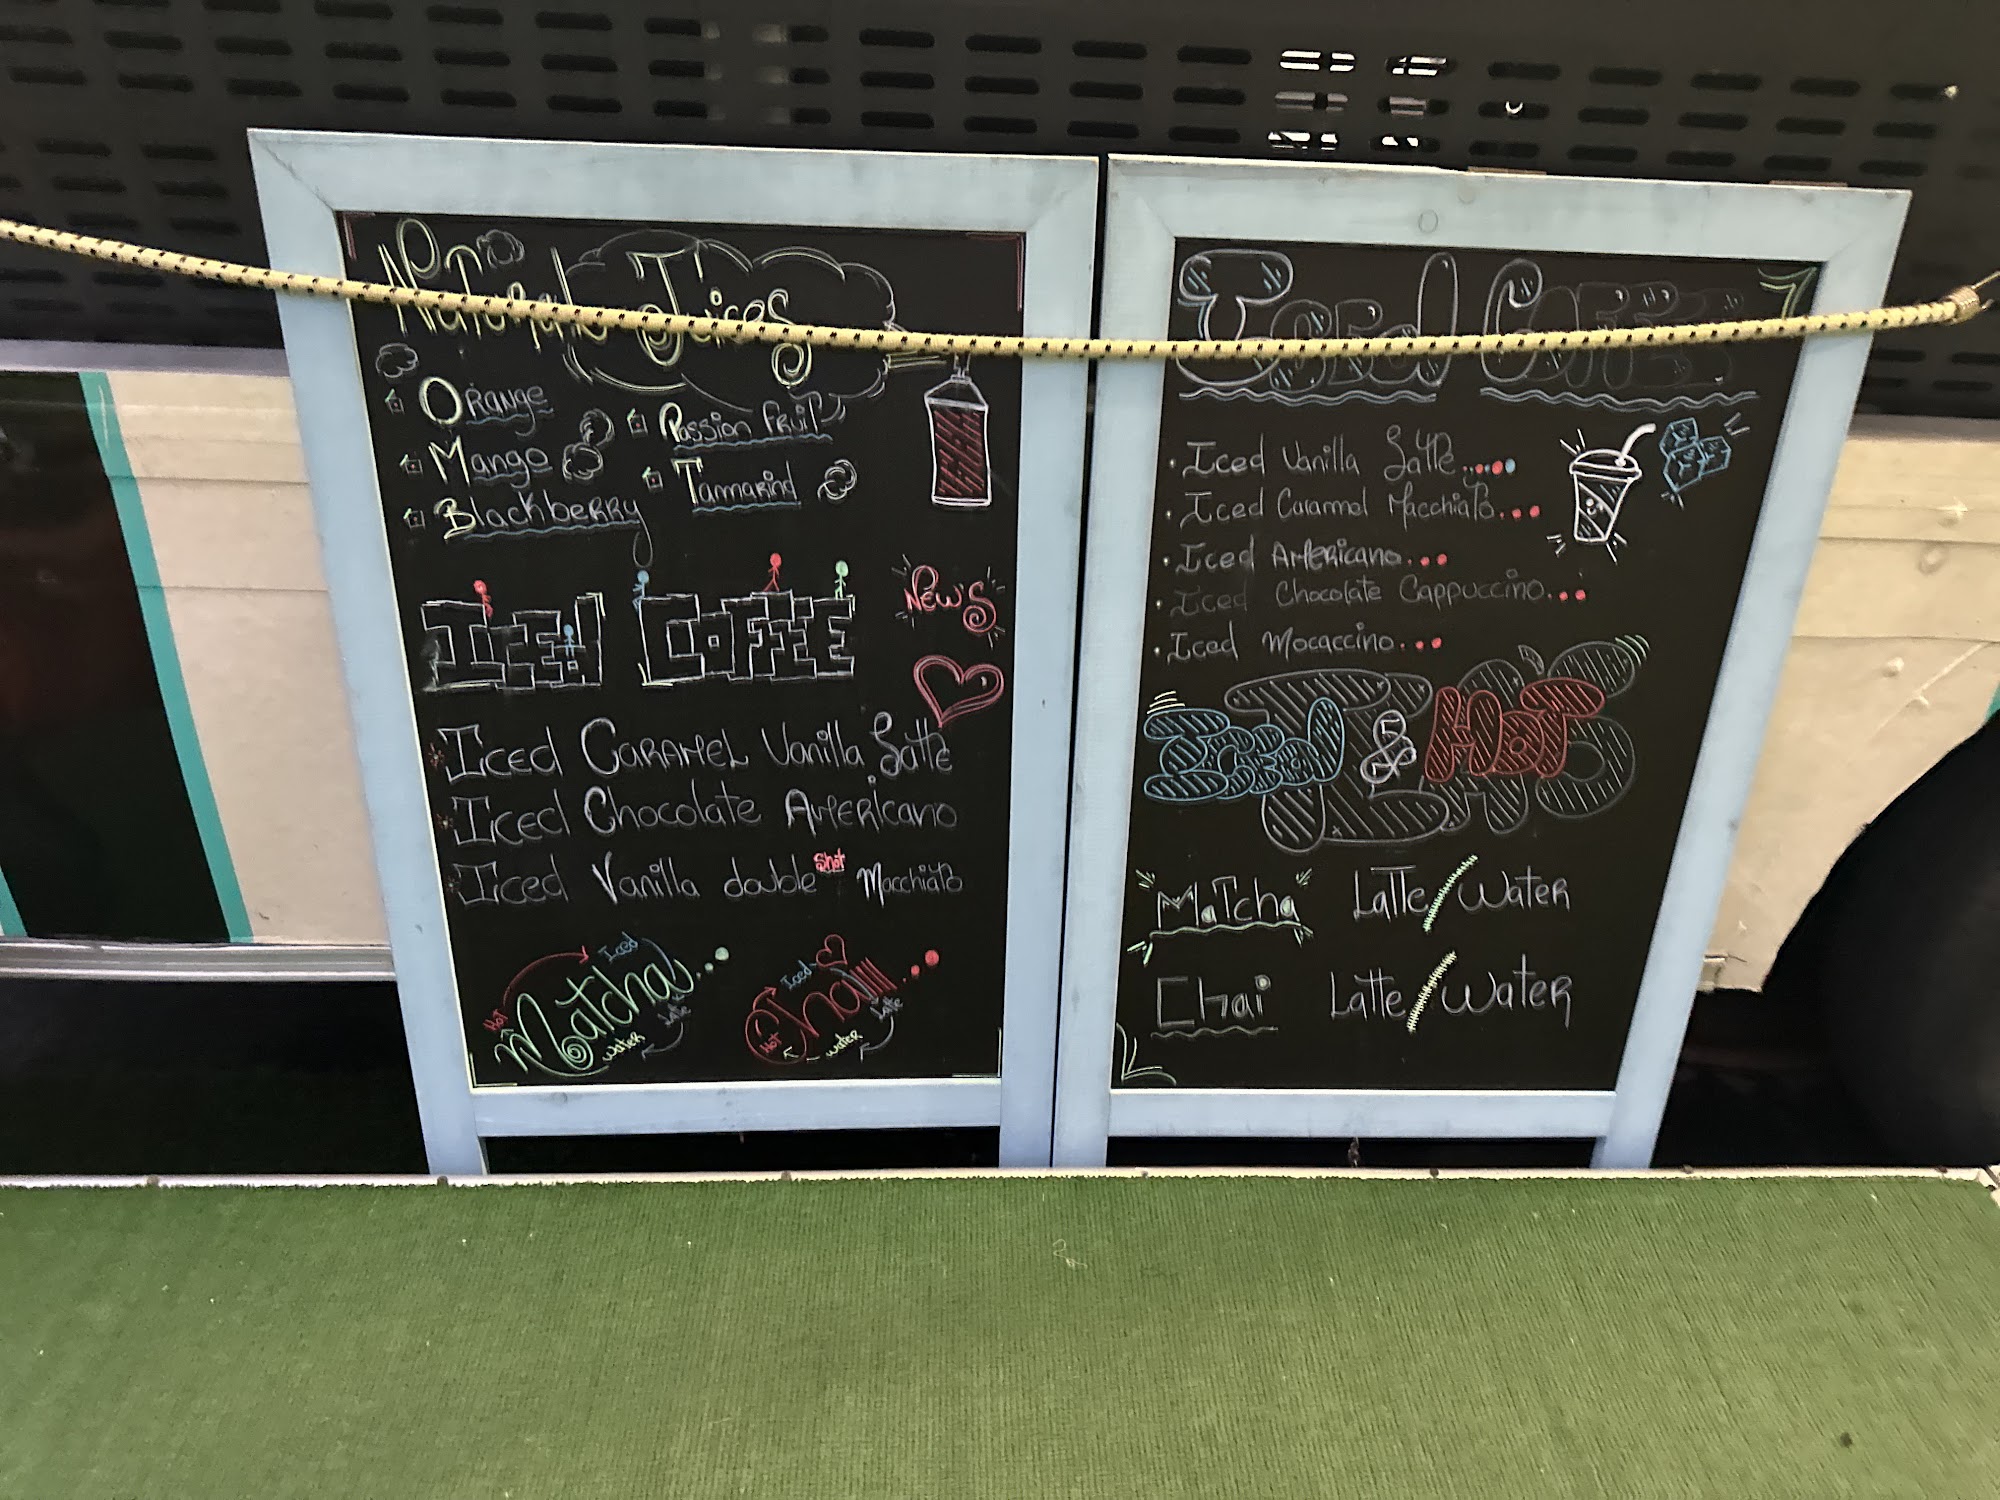 Natural Juices
Orange
Mango
Blackberry
Passion fruit
Tamarind
Iced Coffee
New's
Iced Caramel Vanilla Latte
Iced Chocolate Americano
Iced Vanilla double shot Macchiato
Hot Matcha Iced
Latte
water
Hot Chai Iced
Latte
water
Iced Coffee
Iced Vanilla Latte....
Iced Caramel Macchiato...
Iced Americano...
Iced Chocolate Cappuccino...
Iced Mocaccino...
Iced & Hot
Matcha Latte/Water
Chai Latte/Water